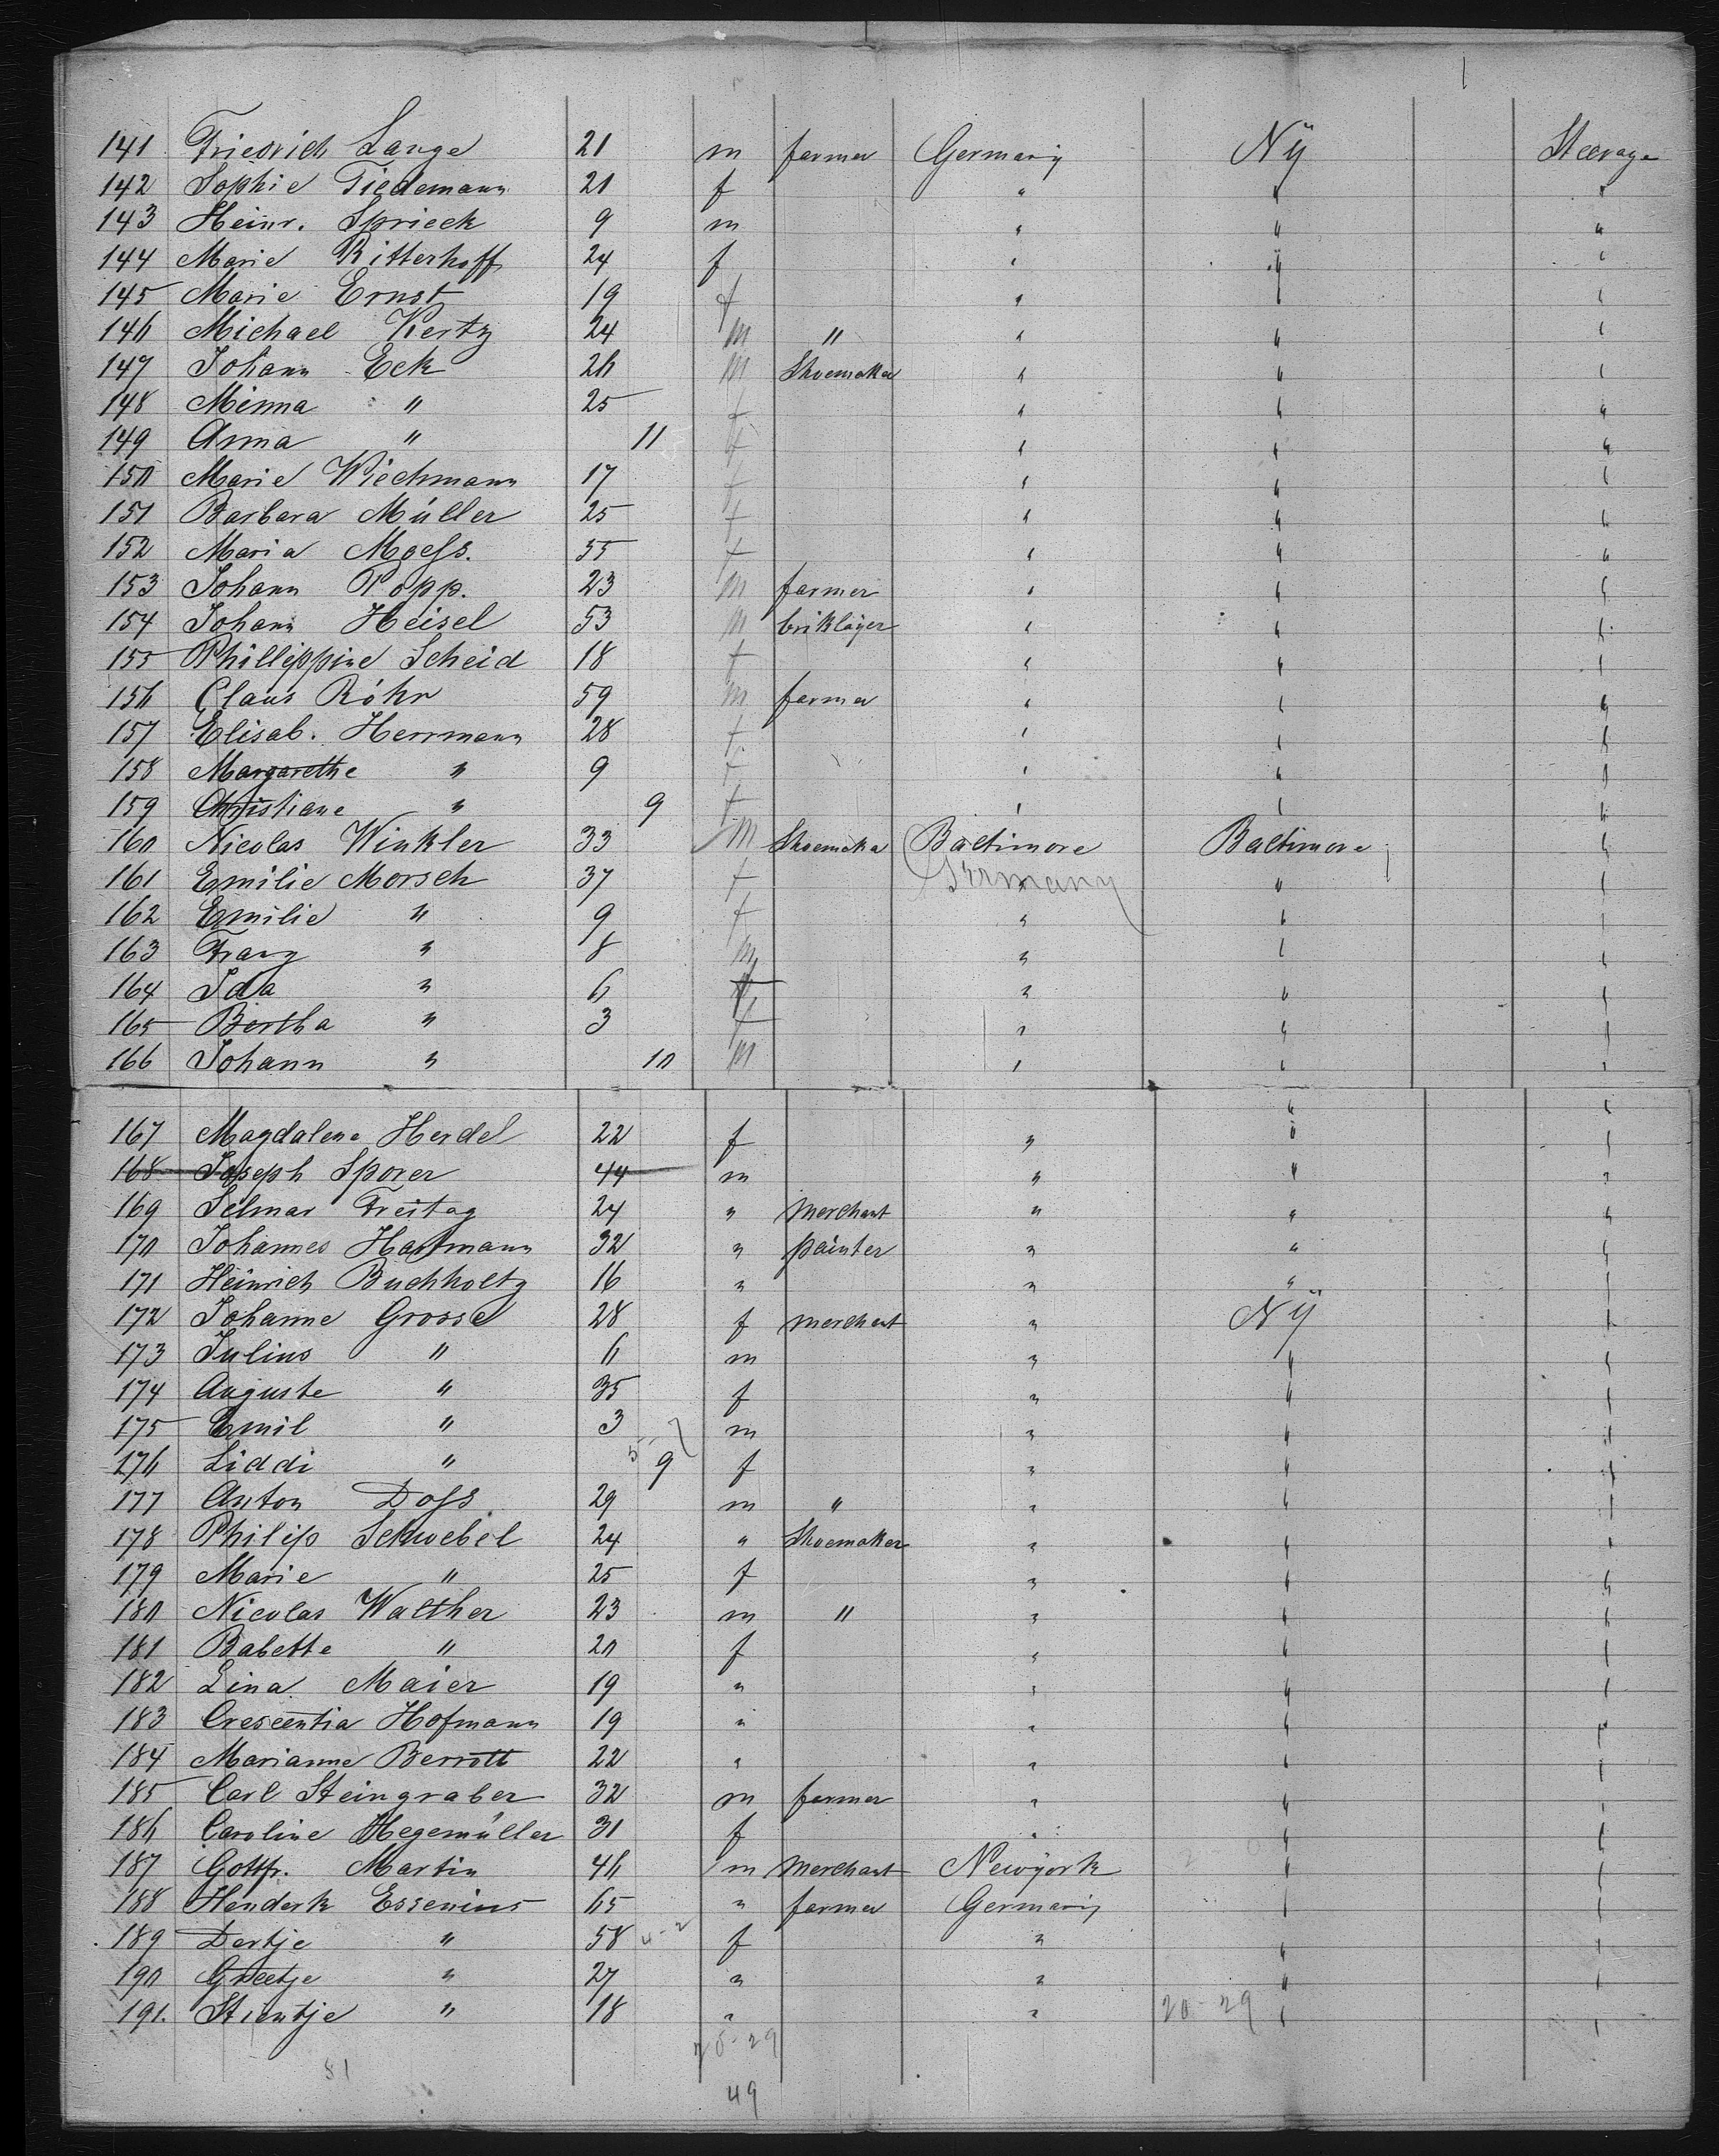 141 Friedrich Lange 21 m farmer Germany Ny Steerage
142 Sophie Tiedemann 21 f " " "
143 Heinr. Sprieck 9 m " " "
144 Marie Ritterhoff 24 f " " "
145 Marie Ernst 19 f " " "
146 Michael Kertz 24 m " " " "
147 Johann Eck 26 m Shoemaker " " "
148 Minna " 25 f " " "
149 Anna " 11 f " " "
150 Marie Wiechmann 17 f " " "
151 Barbara Müller 25 f " " "
152 Maria Moess. 55 f " " "
153 Johann Popp. 23 m farmer " " "
154 Johann Heisel 53 m brikläyer " " "
155 Philleppine Scheid 18 f " " "
156 Claus Röhr 59 m farmer " " "
157 Elisab. Herrmann 28 f " " "
158 Margarethe " 9 f " " "
159 Christiane " 9 f " " "
160 Nicolas Winkler 33 m Shoemaker Baltimore Baltimore "
161 Emilie Morsch 37 f Germany " "
162 Emilie " 9 f " " "
163 Franz " 8 m " " "
164 Ida " 6 f " " "
165 Bertha " 3 f " " "
166 Johann " 10 m " " "
167 Magdalene Herdel 22 f " " "
168 Joseph Sporer 44 m " " "
169 Selmar Freitag 24 " merchant " " "
170 Johannes Hartmann 32 " painter " " "
171 Heinrich Buchholtz 16 " " " "
172 Johanne Grosse 28 f merchant " Ny "
173 Julius " 6 m " " "
174 Auguste " 35 f " " "
175 Emil " 3 m " " "
176 Liddi " 9 f " " "
177 Anton Doss 29 m " " " "
178 Philip Schwebel 24 " Shoemaker " " "
179 Marie " 25 f " " "
180 Nicolas Walther 23 m " " " "
181 Babette " 20 f " " "
182 Lina Maier 19 " " " "
183 Crescentia Hofmann 19 " " " "
184 Marianne Berrott 22 " " " "
185 Carl Steingraber 32 m farmer " " "
186 Caroline Hegemüller 31 f " " "
187 Gottfr. Martin 46 m merchant Newyork " "
188 Henderk Essenius 65 " farmer Germany " "
189 Dertje " 58 4-2 f " " "
190 Greetje " 27 " " " "
191. Stientje " 18 " " 20-29 " "
20-29
81
49